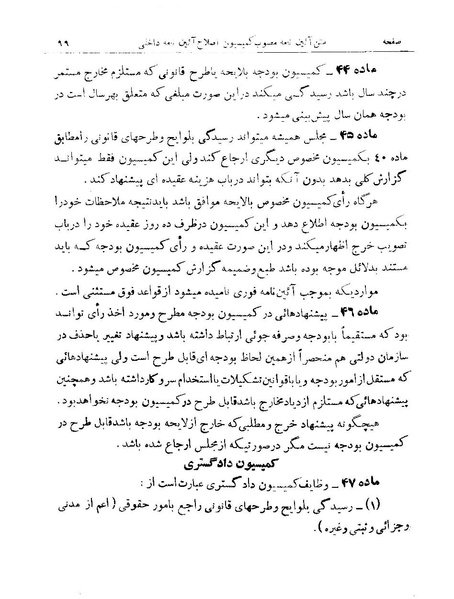 صفحه متن آئین نامه مصوب کمیسیون اصلاح آئین نامه داخلی ۹۹
ماده ۴۴ ـ کمیسیون بودجه بلایحه یاطرح قانونی که مستلزم مخارج مستمر
درچند سال باشد رسیدگی میکند دراین صورت مبلغی که متعلق بهرسال است در
بودجه همان سال پیش‌بینی میشود .
ماده ۴۵ ـ مجلس همیشه میتواند رسیدگی بلوایح وطرحهای قانونی رامطابق
ماده ۴۰ بکمیسیون مخصوص دیگری ارجاع کندولی این کمیسیون فقط میتوانـد
گزارش کلی بدهد بدون آنکه بتواند درباب هزینه عقیده ای پیشنهاد کند .
هرگاه رأی کمیسیون مخصوص بالایحه موافق باشد بایدنتیجه ملاحظات خودرا
بکمیسیون بودجه اطلاع دهد و این کمیسیون درظرف ده روز عقیده خود را درباب
تصویب خرج اظهارمیکند ودر این صورت عقیده و رأی کمیسیون بودجه کـه باید
مستند بدلائل موجه بوده باشد طبع وضمیمه گزارش کمیسیون مخصوص میشود .
مواردیکه بموجب آئین‌نامه فوری نامیده میشود ازقواعد فوق مستثنی است .
ماده ۴۶ ـ پیشنهادهائی در کمیسیون بودجه مطرح ومورد اخذ رأی توانـد
بود که مستقیماً بابودجه وصرفه جوئی ارتباط داشته باشد وپیشنهاد تغییر یاحذف در
سازمان دولتی هم منحصراً ازهمین لحاظ بودجه ای قابل طرح است ولی پیشنهادهائی
که مستقل از امور بودجه و یا باقوانین تشکیلات یا استخدام سر و کارداشته باشد وهمچنین
پیشنهادهائی که مستلزم ازدیاد مخارج باشدقابل طرح در کمیسیون بودجه نخواهدبود .
هیچگونه پیشنهاد خرج ومطلبی که خارج ازلایحه بودجه باشدقابل طرح در
کمیسیون بودجه نیست مگر درصورتیکه ازمجلس ارجاع شده باشد .
کمیسیون دادگستری
ماده ۴۷ ـ وظایف کمیسیون دادگستری عبارت است از :
(۱) ـ رسیدگی بلوایح وطرحهای قانونی راجع بامور حقوقی ( اعم از مدنی
وجزائی و ثبتی وغیره ) .